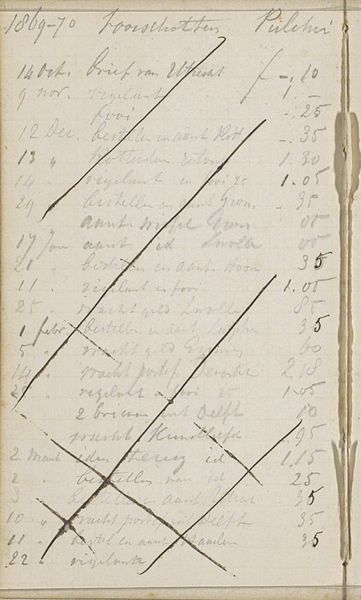 1869-70 voorschotten Pulchri
14 Oct. brief van Utrecht f -. 10
9 nov. vigelant 1. -
fooi -. 25
12 Dec. bestellen en aant -. 35
13 " Rotterdam 1. 30
14 " vigelant en fooi 25 1. 05
29 bestellen en aant -. 35
aant.
17 Jan aant id Zwolle
21 bestellen en aant Hoorn 35
11 . vigelant en fooi 1. 05
25 . vracht geld Zwolle 85
1 febr bestellen en aant 35
5 " vracht geld 60
14 " vracht portef 2.18
25 " vigelant en fooi 25 1.05
2 brieven Delft 10
vracht Kunstliefde .95
2 Maart idem terug id 1.15
2 . bestellen van id 25
3 bestellen en aant 35
10 " vracht portef Delft 35
11 " bestel en aant Haarlem 35
22 " vigelante